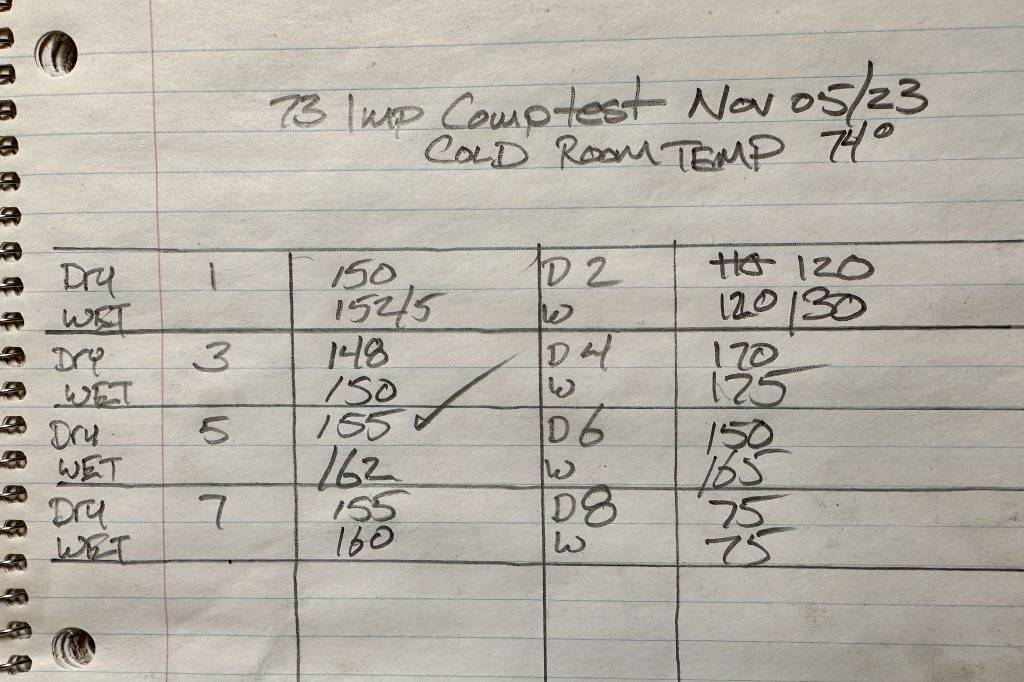 73 Imp Comptest Nov 05/23
COLD ROOM TEMP 74°
Dry 1 150 D 2 120
WET 152/5 W 120/130
Dry 3 148 D 4 120
WET 150 W 125
Dry 5 155 ✓ D 6 150
WET 162 W 165
Dry 7 155 D 8 75
WET 160 W 75